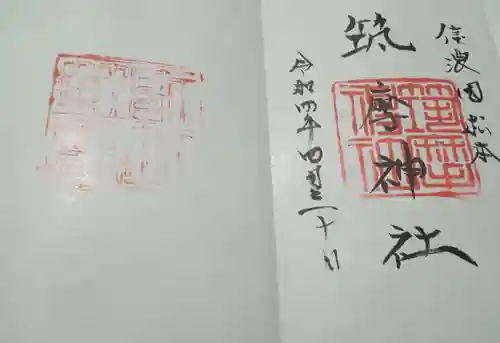 信濃国松本
筑摩神社
令和四年四月二十日